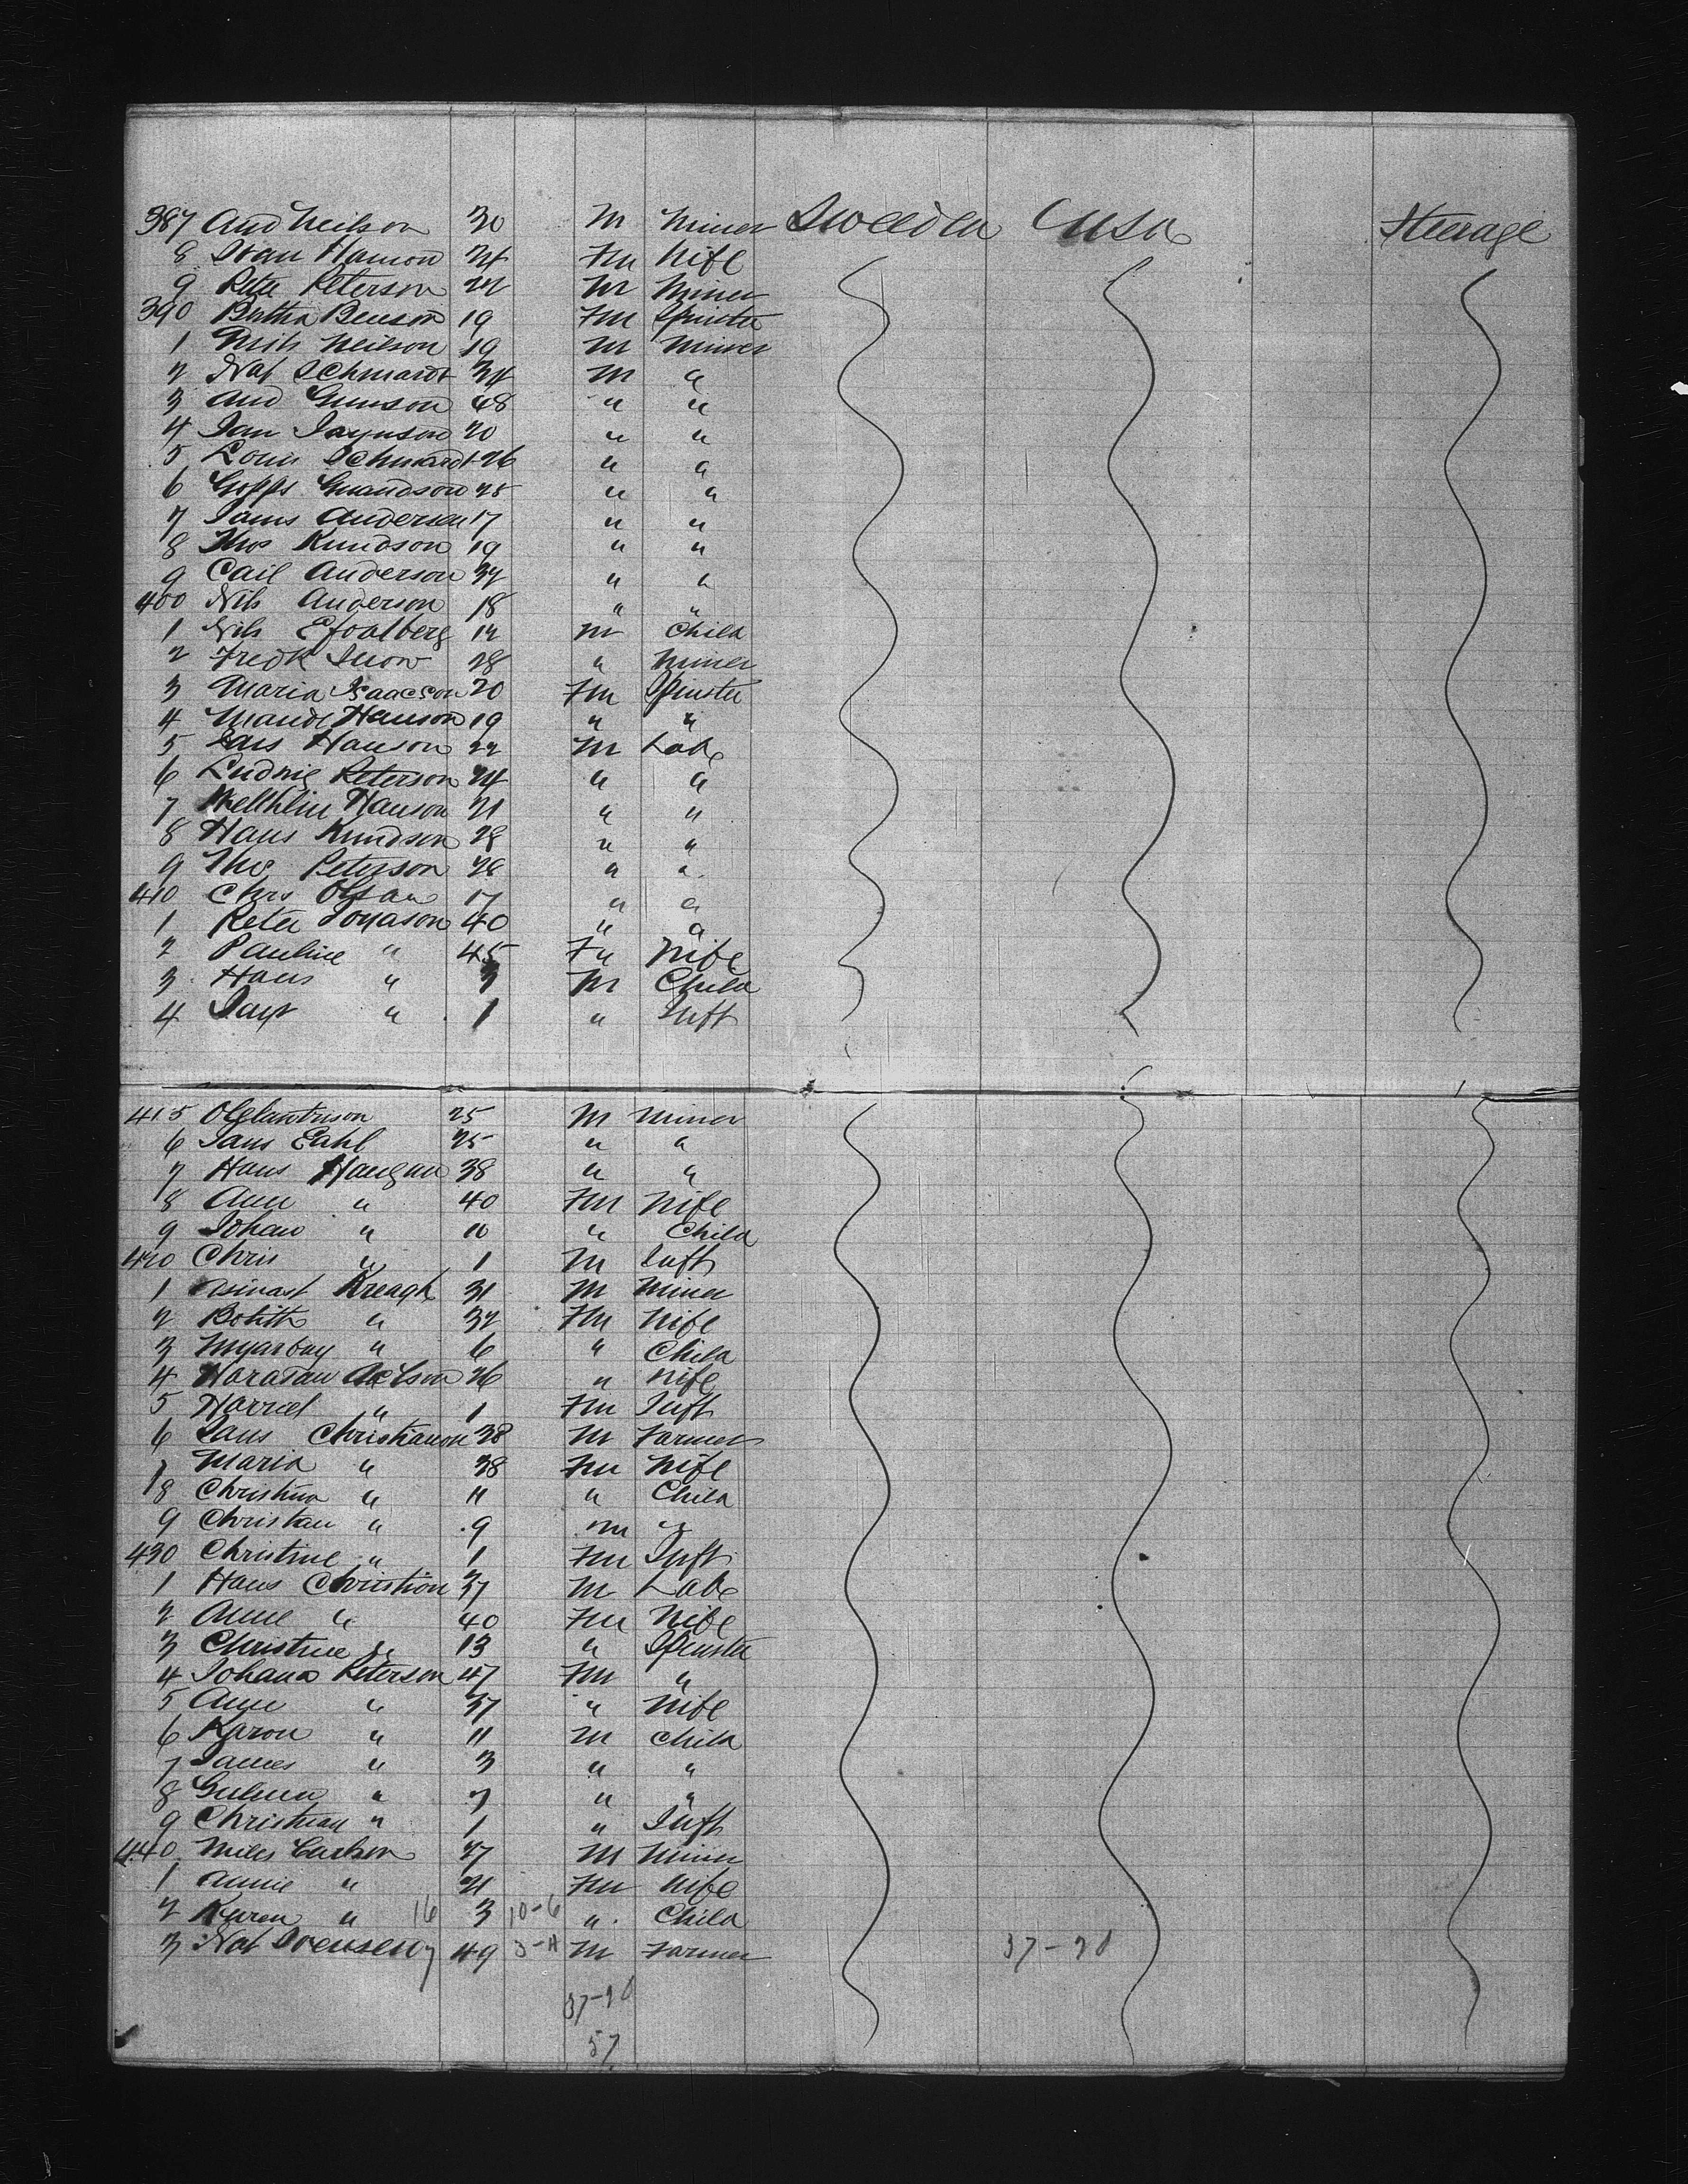 387 And Neilson 30 M Miner Sweeden Usa Steerage
8 Hanson 24 Fm Wife
9 Peter Peterson 24 M Miner
390 Botha Benson 19 Fm Spinster
1 Nils Neilson 19 M Miner
2 Nat Schmardt 34 M "
3 And Gunson 48 " "
4 Jan 20 " "
5 Louis Schmardt 26 " "
6 25 " "
7 Jams Andersen 17 " "
8 Thos Knudson 19 " "
9 Cail Anderson 32 " "
400 Nils Anderson 18 " "
1 Nils 12 M Child
2 Fredk Snow 28 " Miner
3 Maria Isaacson 20 Fm Spinster
4 Maude Hanson 19 " "
5 Lars Hanson 22 M Labr
6 Ludwig Peterson 24 " "
7 Hanson 21 " "
8 Hans Knudson 28 " "
9 Tho Peterson 26 " "
410 Chrs Olsan 17 " "
1 Peter Jonason 40 " "
2 Pauline " 45 Fm Wife
3 Hans " 3 M Child
4 " 1 " Inft
415 25 M Miner
6 Jans Dahl 25 " "
7 Hans Haugan 38 " "
8 Ann " 40 Fm Wife
9 Johan " 10 " Child
420 Chris " 1 M Inft
1 Kreagh 31 M Miner
2 " 32 Fm Wife
3 " 6 " Child
4 26 " Wife
5 Harriel " 1 Fm Inft
6 Jans Christianson 38 M Farmer
7 Maria " 38 Fm Wife
8 Christina " 11 " Child
9 Christian " 9 m "
430 Christine " 1 Fm Inft
1 Hans Christion 37 M Labr
2 Anne " 40 Fm Wife
3 Christine " 13 " Spinster
4 Johana Peterson 47 Fm "
5 Ann " 37 " Wife
6 Karon " 11 M Child
7 James " 3 " "
8 " 7 " "
9 Christian " 1 " Inft
440 Miles Carlson 27 M Miner
1 Annie " 21 Fm Wife
2 Karen " 16 3 10-6 " Child
3 Nat Svensen 7 49 M Farmer 37-20
37-20
57